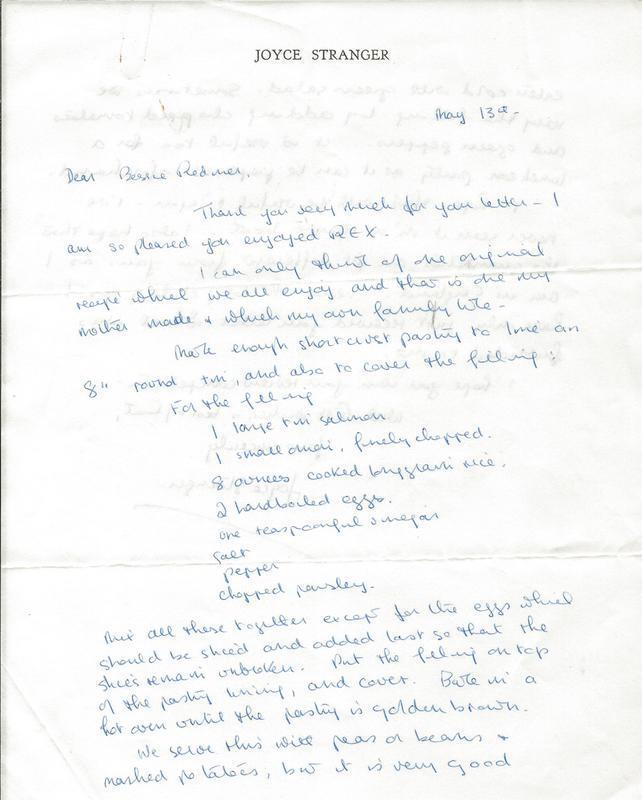 JOYCE STRANGER
May 13th
Dear Bessie Redmer,
Thank you very much for your letter - I
am so pleased you enjoyed REX.
I can only think of one original
recipe which we all enjoy and that is one my
mother made & which my own family like -
Make enough shortcrust pastry to line an
8" round tin, and also to cover the filling:
For the filling
1 large tin salmon
1 small onion, finely chopped.
8 ounces cooked longgrain rice.
2 hardboiled eggs.
one teaspoonful vinegar
salt
pepper
chopped parsley.
Mix all these together except for the eggs which
should be sliced and added last so that the
slices remain unbroken. Put the filling on top
of the pastry lining, and cover. Bake in a
hot oven until the pastry is golden brown.
We serve this with peas or beans &
mashed potatoes, but it is very good